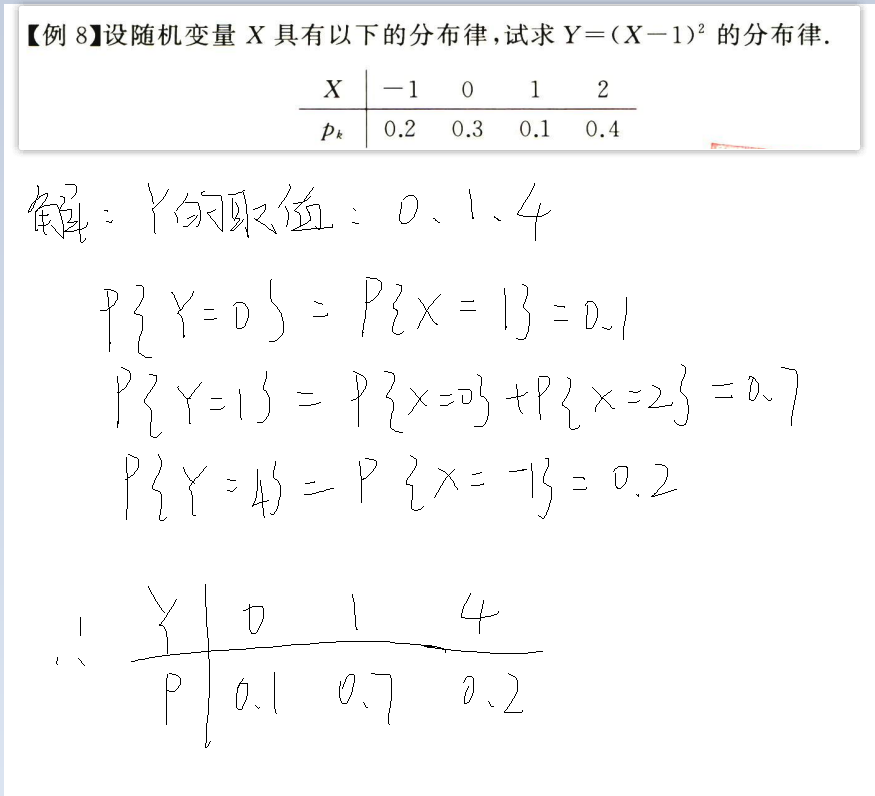 【例 8】设随机变量 X 具有以下的分布律,试求 Y=(X-1)² 的分布律.
X -1 0 1 2
pₖ 0.2 0.3 0.1 0.4
解: Y的取值: 0、1、4
P{Y=0} = P{X=1} = 0.1
P{Y=1} = P{X=0}+P{X=2} = 0.7
P{Y=4} = P{X=-1} = 0.2
∴ Y 0 1 4
P 0.1 0.7 0.2